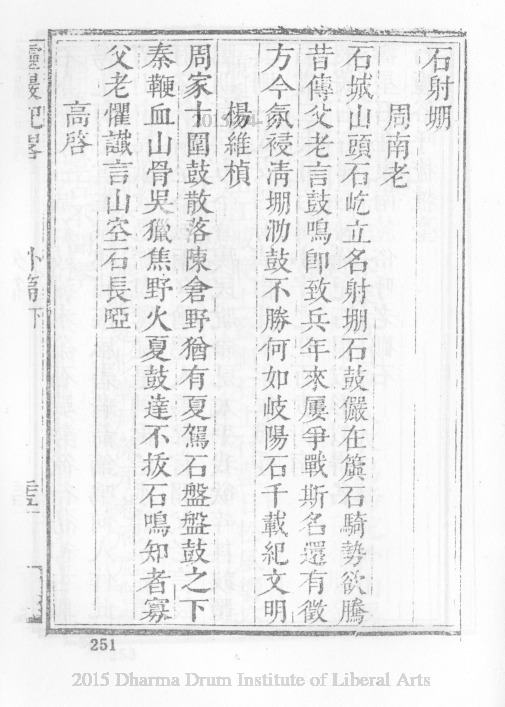 石射堋
周南老
石城山頭石屹立名射堋石鼓儼在簴石騎勢欲騰
昔傳父老言鼓鳴即致兵年來屢爭戰斯名還有徵
方今氛祲淸堋泐鼓不勝何如岐陽石千載紀文明
楊維楨
周家十圍鼓散落陳倉野猶有夏駕石盤盤鼓之下
秦鞭血山骨吳獵焦野火夏鼓達不拔石鳴知者寡
父老懼讖言山空石長啞
高啓
靈巖記畧
外篇下
251
2015 Dharma Drum Institute of Liberal Arts